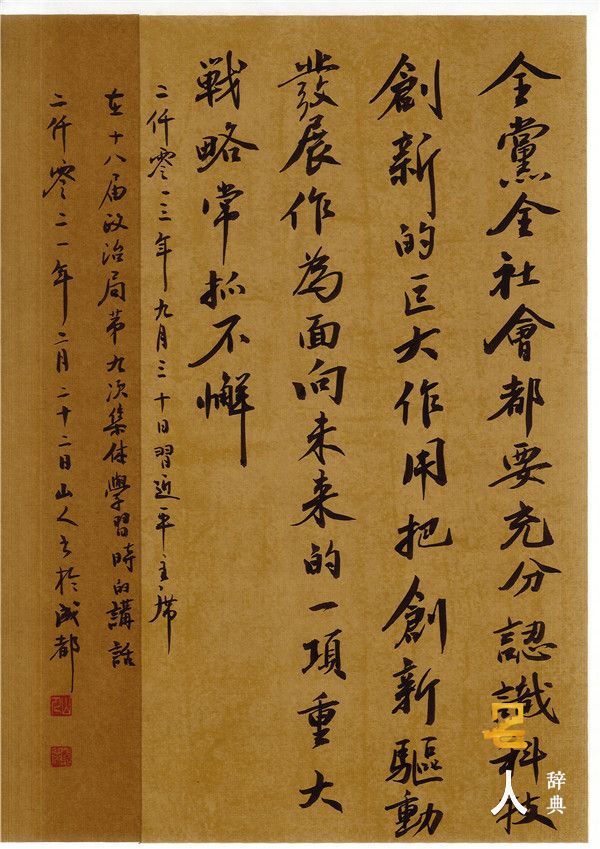 全黨全社會都要充分認識科技
創新的巨大作用把創新驅動
發展作為面向未来的一項重大
戦略常抓不懈
二仟零一三年九月三十日習近平主席
在十八届政治局苐九次集体學習時的講話
二仟零二一年二月二十二日山人书於成都
名人
辞典